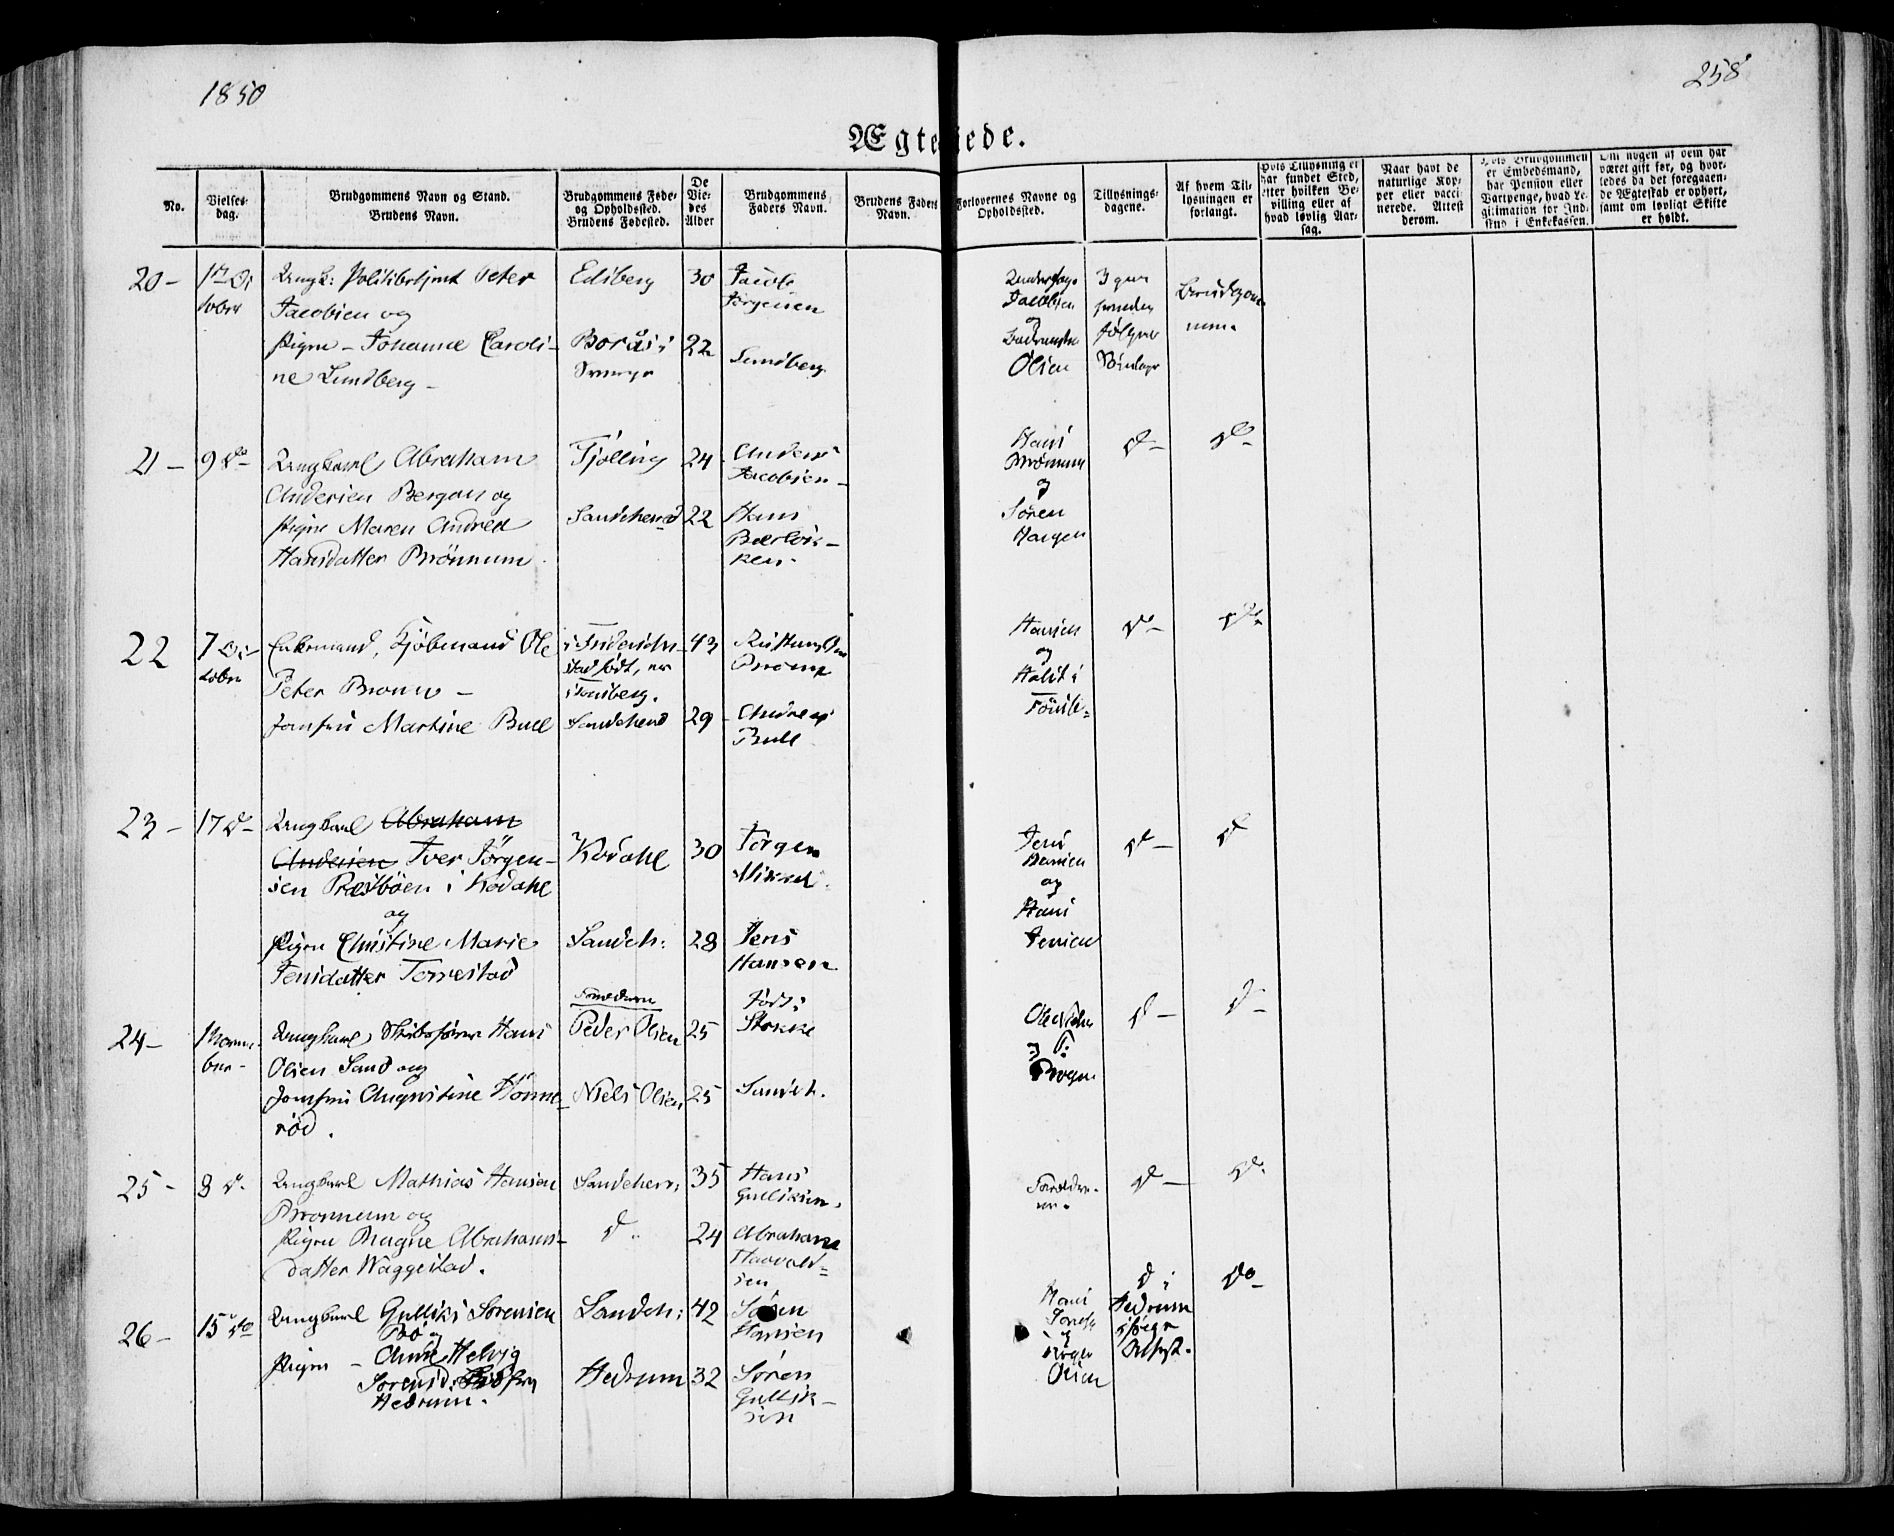 1850
258
Ægteviede.
No.
Vielses-
dag.
Brudgommens Navn og Stand.
Brudens Navn.
Brudgommens Føde-
og Opholdssted.
Brudens Fødested.
De
Vie-
des
Alder
Brudgommens
Faders Navn.
Brudens Faders
Navn.
Forlovernes Navne og
Opholdssted.
Tillysnings-
dagene.
Af hvem Til-
lysningen er
forlangt.
Hvis Tillysning ei
har fundet Sted,
efter hvilken Be-
villing eller af
hvad lovlig Aar-
sag.
Naar havt de
naturlige Kop-
per eller vacci-
nerede. Attest
derom.
Hvis Brudgommen
er Embedsmand,
har Pension eller
Vartpenge, hvad Le-
gitimation for Ind-
skud i Enkekassen.
Om nogen af dem har
været gift før, og hvor-
ledes da det foregaaen-
de Ægteskab er ophørt,
samt om lovligt Skifte
er holdt.
20 - 1ste Oc
tober
Ungk: Politibetjent Peter
Jacobsen og
Pigen - Johanne Caroli-
ne Lundberg -
Edsberg 30 Jacob
Jörgensen
Borås i 22
Sverige
Lundberg
Jacobsen
og
Olsen
3 gange
paa hin
fölgende
Söndage
Brudgom-
men.
21 - 9 do - Ungkarl Abraham
Andersen Bergan og
Pigen Maren Andrea
Hansdatter Brönnum.
Tjölling 24 Anders
Jacobsen -
Sandeherred 22 Hans
Hans
Brönnum
og
Sören
Haugen
do - do -
22 7 Oc-
tober
Enkemand, Kjöbmand Ole
Peter Bromp -
Jomfru Martine Bull
i Friderich-
stad födt, nu
i Tønsberg.
43
Bromp
Sandeherred 29 Andreas
Bull
Hansen
og
Holst i
do - do -
23 - 17 do - Ungkarl Abraham
Andersen Iver Jörgen-
sen Præstböen i Kodahl
og
Pigen Christine Marie
Jensdatter Torrestad
Kodahl 30 Jörgen
Mikkel.
Sandeh: 28 Jens
Hansen
Jens
Hansen
og
Hans
Jensen
do - do
24 - 1 Novem-
ber -
Ungkarl, Skibsförer Hans
Olsen Sand og
Jomfru Augustine Hönne-
röd.
Forældrene
Peder Olsen 25
Födt i
Stokke
Niels Olsen 25 Sandeh.
do - do -
25 - 8 do. Ungkarl Mathias Hansen
Bronnum og
Pigen Bragne Abrahams-
datter Wäggestad.
Sandeherr: 35 Hans
Gulliksen.
do. 24 Abraham
Haavald-
sen
Forældre-
ne.
do - do.
26 - 15 do Ungkarl Gulliks Sorensen
Bö og
Pigen - Anne Helvig
Sorensd:
Hedrum.
Sandeh: 42 Sören
Hansen
Hedrum 32 Sören
Gullik-
sen
Hans
og
Olsen
do i
Hedrum
ifölge
Attest.
do -